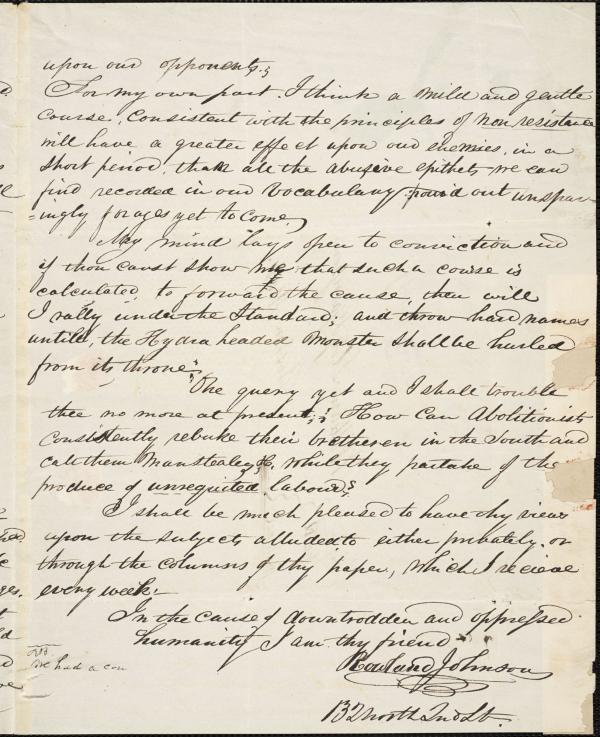 upon our opponents.;
For my own part. I think a mild and gentle
course, Consistent with the principles of non resistance
will have a greater effect upon our enemies, in a
short period, than all the abusive epithets we can
find recorded in our Vocabulary, pour'd out unspar-
=ingly for ages yet to come,
My mind lays open to conviction and
if thou canst show me that such a course is
calculated to forward the cause, then will
I rally under the Standard; and throw hard names
untill, the Hydra headed Monster shall be hurled
from its throne,
One query yet and I shall trouble
thee no more at present,; How Can Abolitionists
consistently rebuke their bretheren in the South and
call them Manstealers &c, while they partake of the
produce of unrequited labour,?
I shall be much pleased to have thy views
upon the subjects alluded to either privately. or
through the columns of thy paper, which I recieve
every week.
In the cause of downtrodden and oppressed
humanity I am thy friend
Rowland Johnson
132 North 2nd St.
we had a con